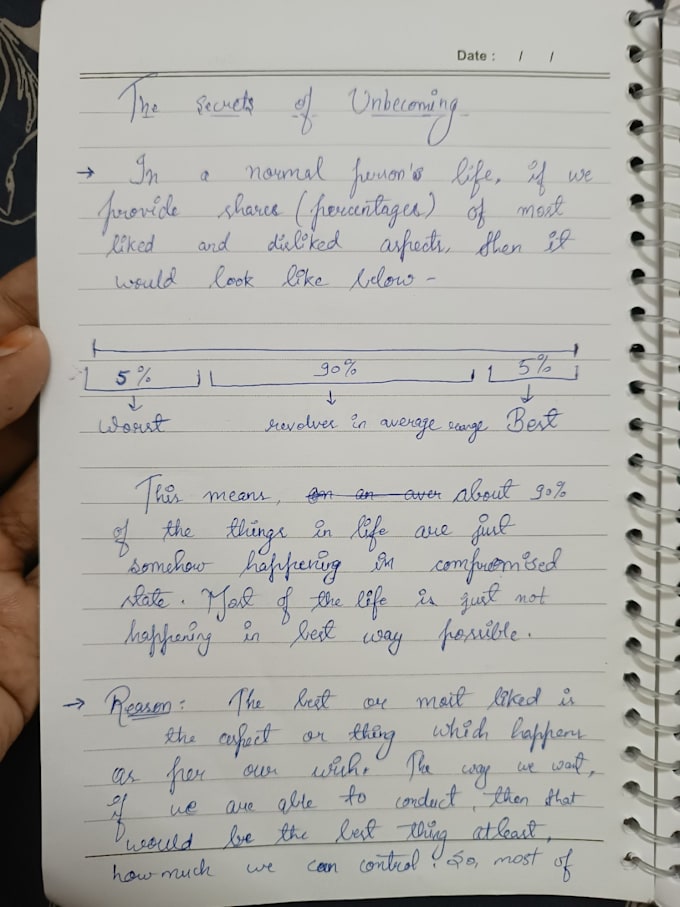 Date : / /
The Secrets of Unbecoming
→ In a normal person's life, if we
provide shares (percentages) of most
liked and disliked aspects, then it
would look like below -
5% 90% 5%
Worst revolves in average range Best
This means, on an aver about 90%
of the things in life are just
somehow happening in compromised
state. Most of the life is just not
happening in best way possible.
→ Reason: The best or most liked is
the aspect or thing which happens
as per our wish. The way we want,
if we are able to conduct, then that
would be the best thing atleast,
how much we can control. So, most of